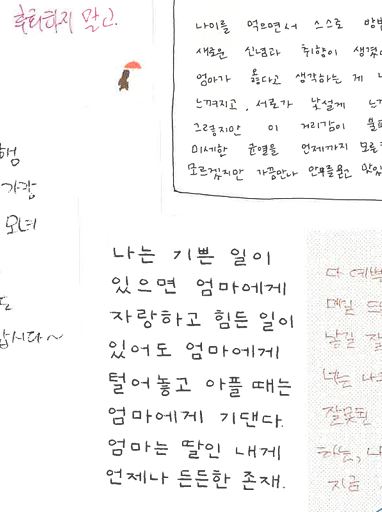 후회하지 말고.
나이를 먹으면서 스스로
새로운 신념과 취향이
엄마가 옳다고 생각하는 게
느껴지고, 서로가 낯설게
그렇지만 이 거리감이
미세한 균열을 언제까지
모르겠지만 가끔 만나 안부를 묻고
가장
모녀
합시다~
나는 기쁜 일이
있으면 엄마에게
자랑하고 힘든 일이
있어도 엄마에게
털어놓고 아플 때는
엄마에게 기댄다.
엄마는 딸인 내게
언제나 든든한 존재.
다
매일
남길
너는
잘못된
하는, 나
지금